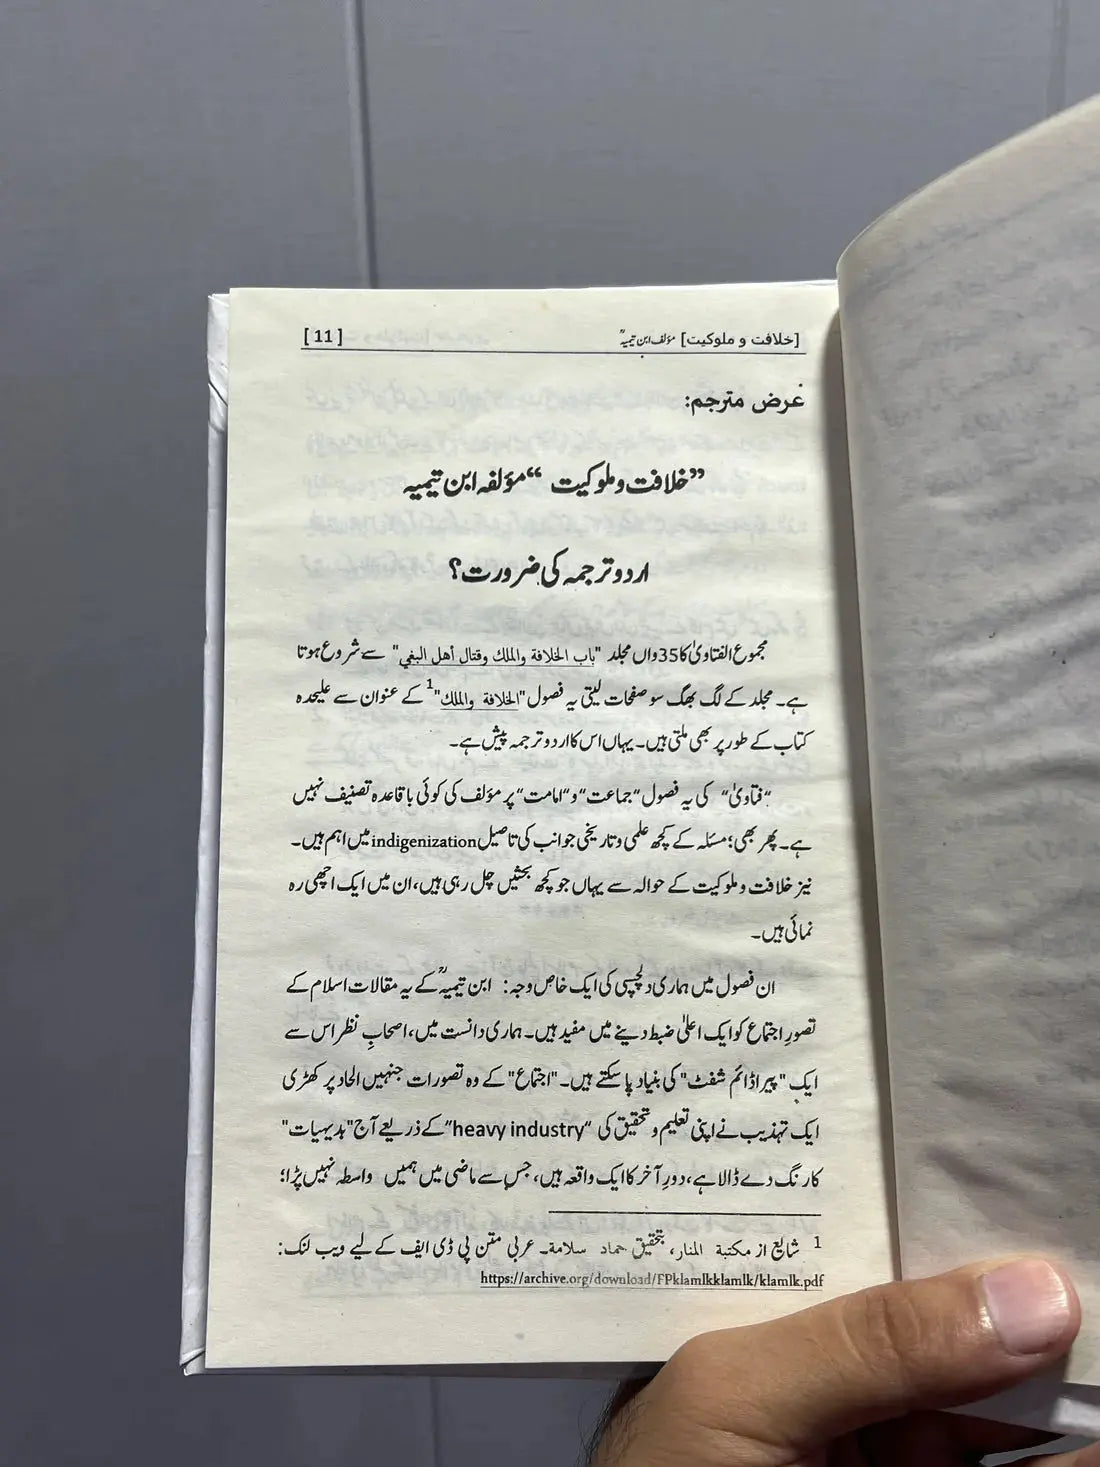 [خلافت و ملوکیت] مؤلف ابن تیمیہؒ [ 11 ]
عرض مترجم:
”خلافت و ملوکیت “مؤلفہ ابن تیمیہ
اردو ترجمہ کی ضرورت؟
مجموع الفتاویٰ کا 35 واں مجلد "باب الخلافة والملك وقتال أهل البغي" سے شروع ہوتا
ہے۔ مجلد کے لگ بھگ سو صفحات لیتی یہ فصول "الخلافة والملك"1 کے عنوان سے علیحدہ
کتاب کے طور پر بھی ملتی ہیں۔ یہاں اس کا اردو ترجمہ پیش ہے۔
”فتاویٰ“ کی یہ فصول ”جماعت“ و ”امامت“ پر مؤلف کی کوئی باقاعدہ تصنیف نہیں
ہے۔ پھر بھی؛ مسئلہ کے کچھ علمی و تاریخی جوانب کی تاصیل indigenization میں اہم ہیں۔
نیز خلافت و ملوکیت کے حوالہ سے یہاں جو کچھ بحثیں چل رہی ہیں، ان میں ایک اچھی رہ
نمائی ہیں۔
ان فصول میں ہماری دلچسپی کی ایک خاص وجہ: ابن تیمیہؒ کے یہ مقالات اسلام کے
تصورِ اجتماع کو ایک اعلیٰ ضبط دینے میں مفید ہیں۔ ہماری دانست میں، اصحابِ نظر اس سے
ایک "پیراڈائم شفٹ" کی بنیاد پا سکتے ہیں۔ "اجتماع" کے وہ تصورات جنہیں الحاد پر کھڑی
ایک تہذیب نے اپنی تعلیم و تحقیق کی “heavy industry” کے ذریعے آج "بدیہیات"
کا رنگ دے ڈالا ہے، دورِ آخر کا ایک واقعہ ہیں، جس سے ماضی میں ہمیں واسطہ نہیں پڑا؛
1 شایع از مکتبة المنار، بتحقیق حماد سلامة۔ عربی متن پی ڈی ایف کے لیے ویب لنک:
https://archive.org/download/FPklamlkklamlk/klamlk.pdf